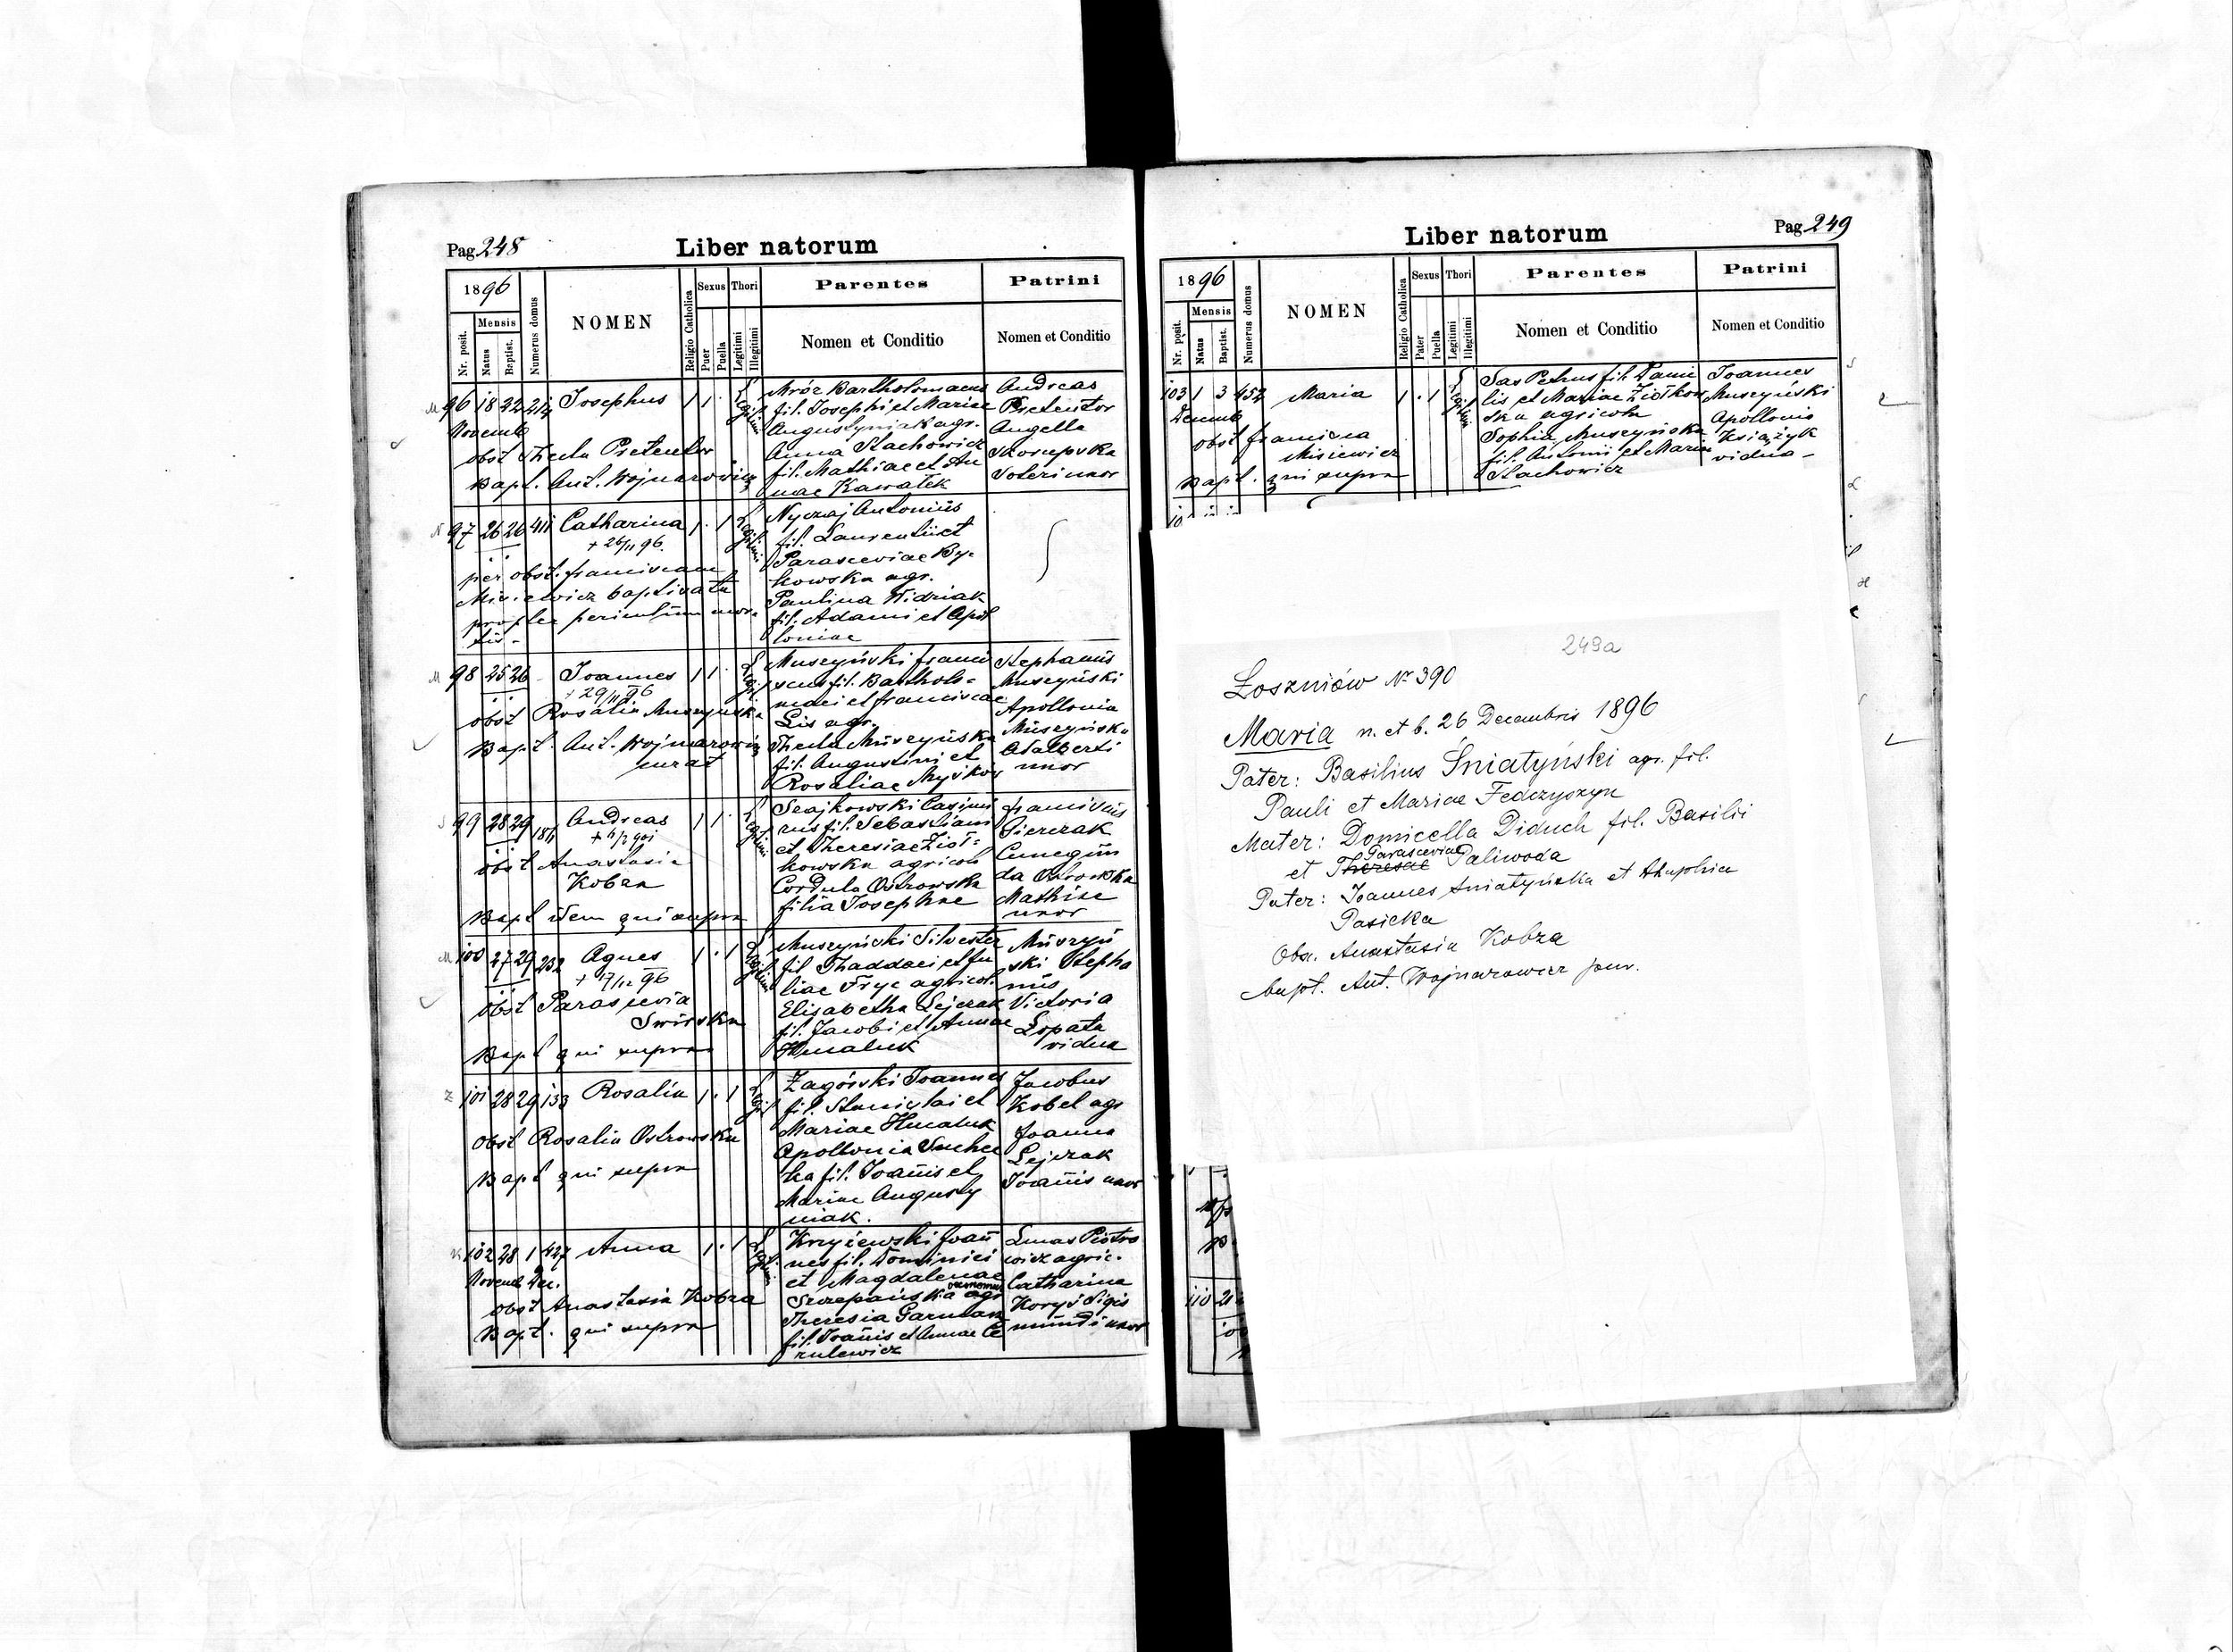 Pag 248
Liber natorum
1896
Nr. posit.
Mensis
Natus
Baptist.
Numerus domus
NOMEN
Religio Catholica
Sexus
Puer
Puella
Thori
Legitimi
Illegitimi
Parentes
Nomen et Conditio
Patrini
Nomen et Conditio
96 18 22 214 Josephus 1 1 .
Novemb
obst Thecla Pretentor
Bapt. Ant. Wojnarowicz
Mróz Bartholomaeus
fil. Josephi et Mariae
Augustyniak agr.
Anna Stachowicz
fil. Mathiae et An
nae Kawałek
Andreas
Pretentor
Angella
Skorupska
Soteri uxor
97 26 26 411 Catharina 1 . 1
+ 26/11 96.
per obst. franciscam
Misiewicz baptizata
propter periculum mor
tis -
Nyczaj Antonius
fil. Laurentii et
Parasceviae By-
kowska agr.
Paulina Widziak
fil. Adami et Apol
loniae
98 25 26 - Joannes 1 1 .
+ 29/11 96
obst Rosalia Muszyńska
Bapt. Ant. Wojnarowicz
curat
Muszyński franci
scus fil. Bartholo-
maei et franciscae
Lis agr.
Thecla Muszyńska
fil. Augustini et
Rosaliae Myśków
Stephanus
Muszyński
Apollonia
Muszyńska
Adalberti
uxor
99 28 29 181 Andreas 1 1 .
obst Anastasia
Kobza
Bapt idem qui supra
Seajkowski Casimi
rus fil. Sebastiani
et Theresiae Ziół-
kowska agricol
Cordula Ostrowska
filia Josephae
franciscus
Sierczak
Cunegun
da Ostrowska
Mathiae
uxor
100 27 29 232 Agnes 1 . 1
+ 17/12 96
obst Parascevia
Swirska
Bapt qui supra
Muszyński Silvester
fil Thaddaei et Ju
liae Fryc agricol.
Elisabetha Lejczak
fil. Jacobi et Annae
Hucaluk
Muszyń
ski Stepha
nus
Victoria
Łopata
vidua
101 28 29 133 Rosalia 1 . 1
obst Rosalia Ostrowska
Bapt qui supra
Zagórski Joannes
fil. Stanislai et
Mariae Hucaluk
Apollonia Suchec
ka fil. Joannis et
Mariae Augusty
niak.
Jacobus
Kobel agr
Joanna
Lejczak
Joannis uxor
102 28 1 427 Anna 1 . 1
Novemb Dec.
obst Anastasia Kobza
Bapt. qui supra
Krzyżewski Joan
nes fil. Dominici
et Magdalenae
Szczepańska agr
Theresia Garncarz
fil. Joannis et Annae Ce
zulewicz
Lucas Piotro
wicz agric.
Catharina
Koryś Sigis
mundi uxor
Pag 249
Liber natorum
1896
Nr. posit.
Mensis
Natus
Baptist.
Numerus domus
NOMEN
Religio Catholica
Sexus
Pater
Puella
Thori
Legitimi
Illegitimi
Parentes
Nomen et Conditio
Patrini
Nomen et Conditio
103 1 3 452 Maria 1 . 1
Decemb
obst francisca
Misiewicz
Bapt. qui supra
Sas Petrus fil. Dani
lis et Mariae Ziółkow
ska agricola
Sophia Muszyńska
fil. Antonii et Mariae
Stachowicz
Joannes
Muszyński
Apollonia
Książyk
vidua -
249a
Łoszniów Nr 390
Maria n. et b. 26 Decembris 1896
Pater: Basilius Śniatyński agr. fil.
Pauli et Mariae Fedczyszyn
Mater: Domicella Diduch fil. Basilii
Parasceviae
et Theresae Paliwoda
Pater: Joannes Śniatyńska et
Pasicka
Obs. Anastasia Kobza
bapt. Ant. Wojnarowicz
110 21